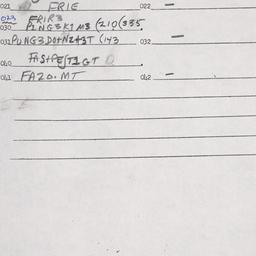 021 FRIE 022 –
023 FRIR3
030 PING3K1M3 (210(335
031 PUNG3DO+N2+3T (143 032 –
040 FAS+PE(T1GT
041 FA20.MT 042 –